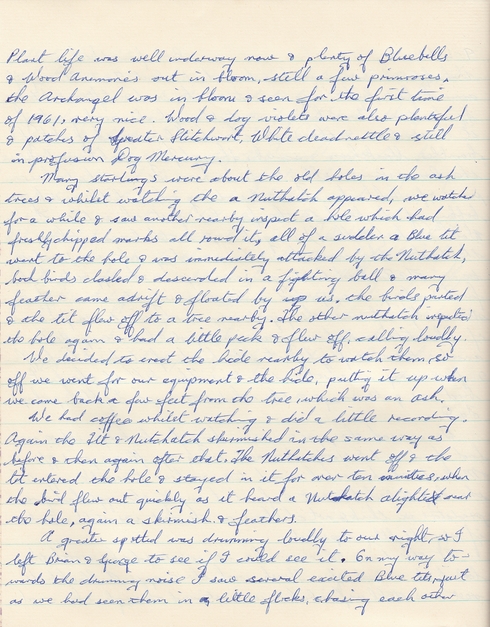 Plant life was well underway now & plenty of Bluebells
& Wood Anemones out in bloom, still a few primroses,
the Archangel was in bloom & seen for the first time
of 1961, very nice. Wood & dog violets were also plentiful
& patches of Greater Stitchwort, White deadnettle & still
in profusion Dog Mercury.
Many starlings were about the old holes in the ash
trees & whilst watching the a Nuthatch appeared, we watched
for a while & saw another nearby inspect a hole which had
freshly chipped marks all round it, all of a sudden a Blue tit
went to the hole & was immediately attacked by the Nuthatch,
both birds clashed & descended in a fighting ball & many
feather came adrift & floated by up us, the birds parted
& the tit flew off to a tree nearby. The other nuthatch inspected
the hole again & had a little peck & flew off, calling loudly.
We decided to erect the hide nearby to watch them, so
off we went for our equipment & the hide, putting it up when
we came back a few feet from the tree, which was an ash.
We had coffee whilst watching & did a little recording.
Again the Tit & Nutchatch skirmished in the same way as
before & then again after that. The Nuthatches went off & the
tit entered the hole & stayed in it for over ten minutes, when
the bird flew out quickly as it heard a Nuthatch alighted near
the hole, again a skirmish & feathers.
A greater spotted was drumming loudly to our right, so I
left Brian & George to see if I could see it. On my way to-
wards the drumming noise I saw several excited Blue tits, just
as we had seen them in a little flocks, chasing each other